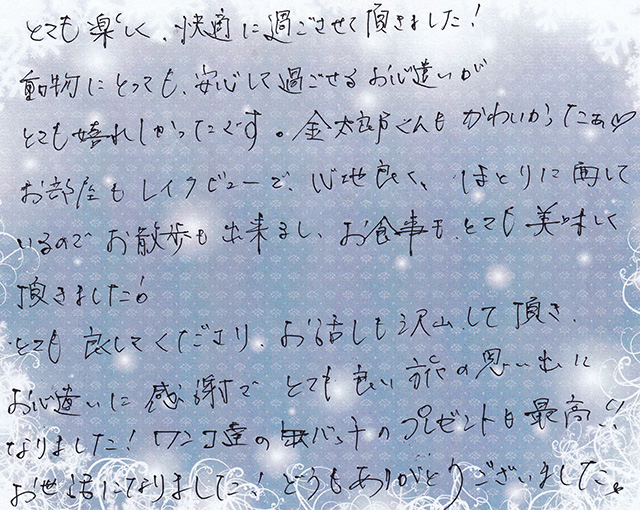 とても楽しく、快適に過ごさせて頂きました！
動物にとっても、安心して過ごせるお心遣いが
とても嬉しかったです。金太郎くんもかわいかったぁ♡
お部屋もレイクビューで、心地良く、ほとりに面して
いるのでお散歩も出来るし、お食事も、とても美味しく
頂きました！
とても良してくださり、お話しも沢山して頂き、
お心遣いに感謝でとても良い旅の思い出に
なりました！ワンコ達の缶バッチのプレゼントも最高!!
お世話になりました！どうもありがとうございました。